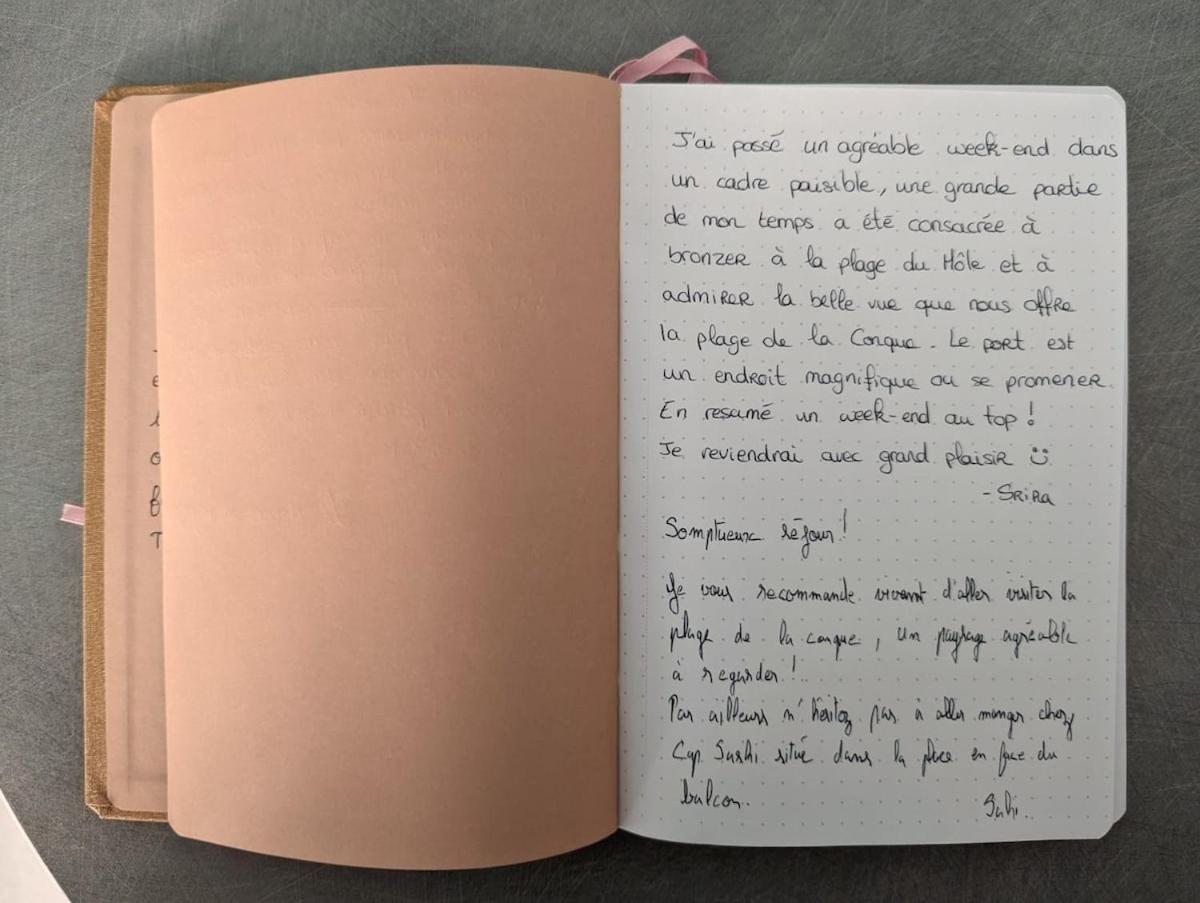 J'ai passé un agréable week-end dans
un cadre paisible, une grande partie
de mon temps a été consacrée à
bronzer à la plage du Môle et à
admirer la belle vue que nous offre
la plage de la Conque. Le port est
un endroit magnifique ou se promener
En resumé un week-end au top !
Je reviendrai avec grand plaisir
- Srira
Somptueux séjour !
Je vous recommande vivement d'aller visiter la
plage de la conque, un paysage agréable
à regarder !
Par ailleurs n'hésitez pas à aller manger chez
Cap Sushi situé dans la place en face du
balcon.
e
T